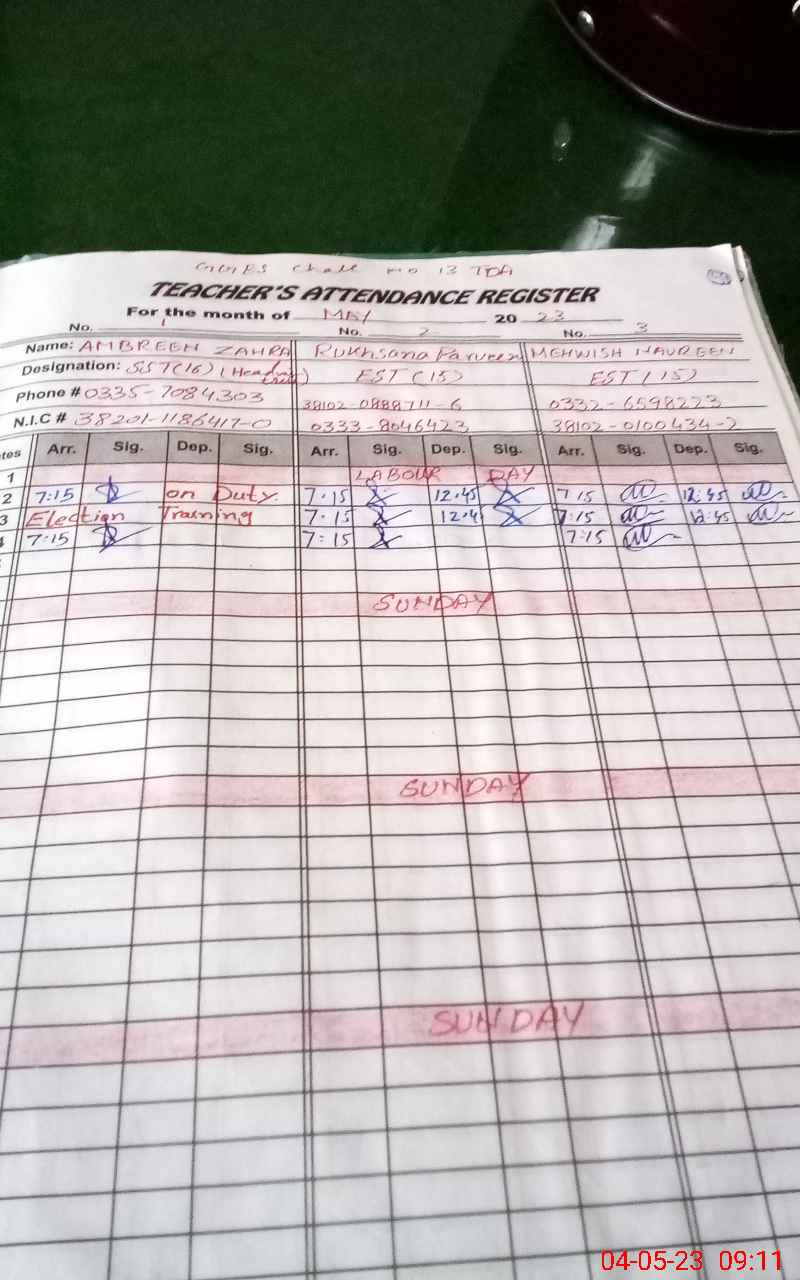 GGES Chak no 13 TDA
TEACHER'S ATTENDANCE REGISTER
For the month of MAY 2023
No. 1 No. 2 No. 3
Name: AMBREEN ZAHRA Rukhsana Parveen MEHWISH NAUREEN
Designation: SST(16) (Head EST (15) EST (15)
Phone # 0335-7084303 38102-0888711-6 0332-6598223
N.I.C # 38201-1186417-0 0333-8046423 38102-0100434-2
Arr. Sig. Dep. Sig. Arr. Sig. Dep. Sig. Arr. Sig. Dep. Sig.
1 LABOUR DAY
2 7:15 on Duty 7:15 12:45 7:15 12:45
3 Election Training 7:15 12:4 7:15 12:45
7:15 7:15 7:15
SUNDAY
SUNDAY
SUNDAY
04-05-23 09:11